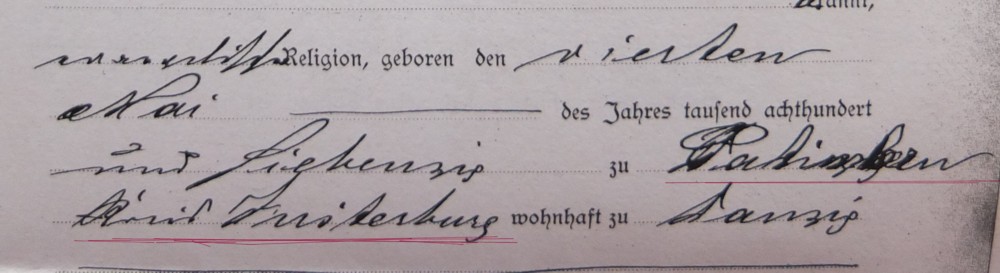 kannt,
evangelischer Religion, geboren den vierten
Mai des Jahres tausend achthundert
und siebenzig zu Patimbern
Kreis Insterburg wohnhaft zu Danzig